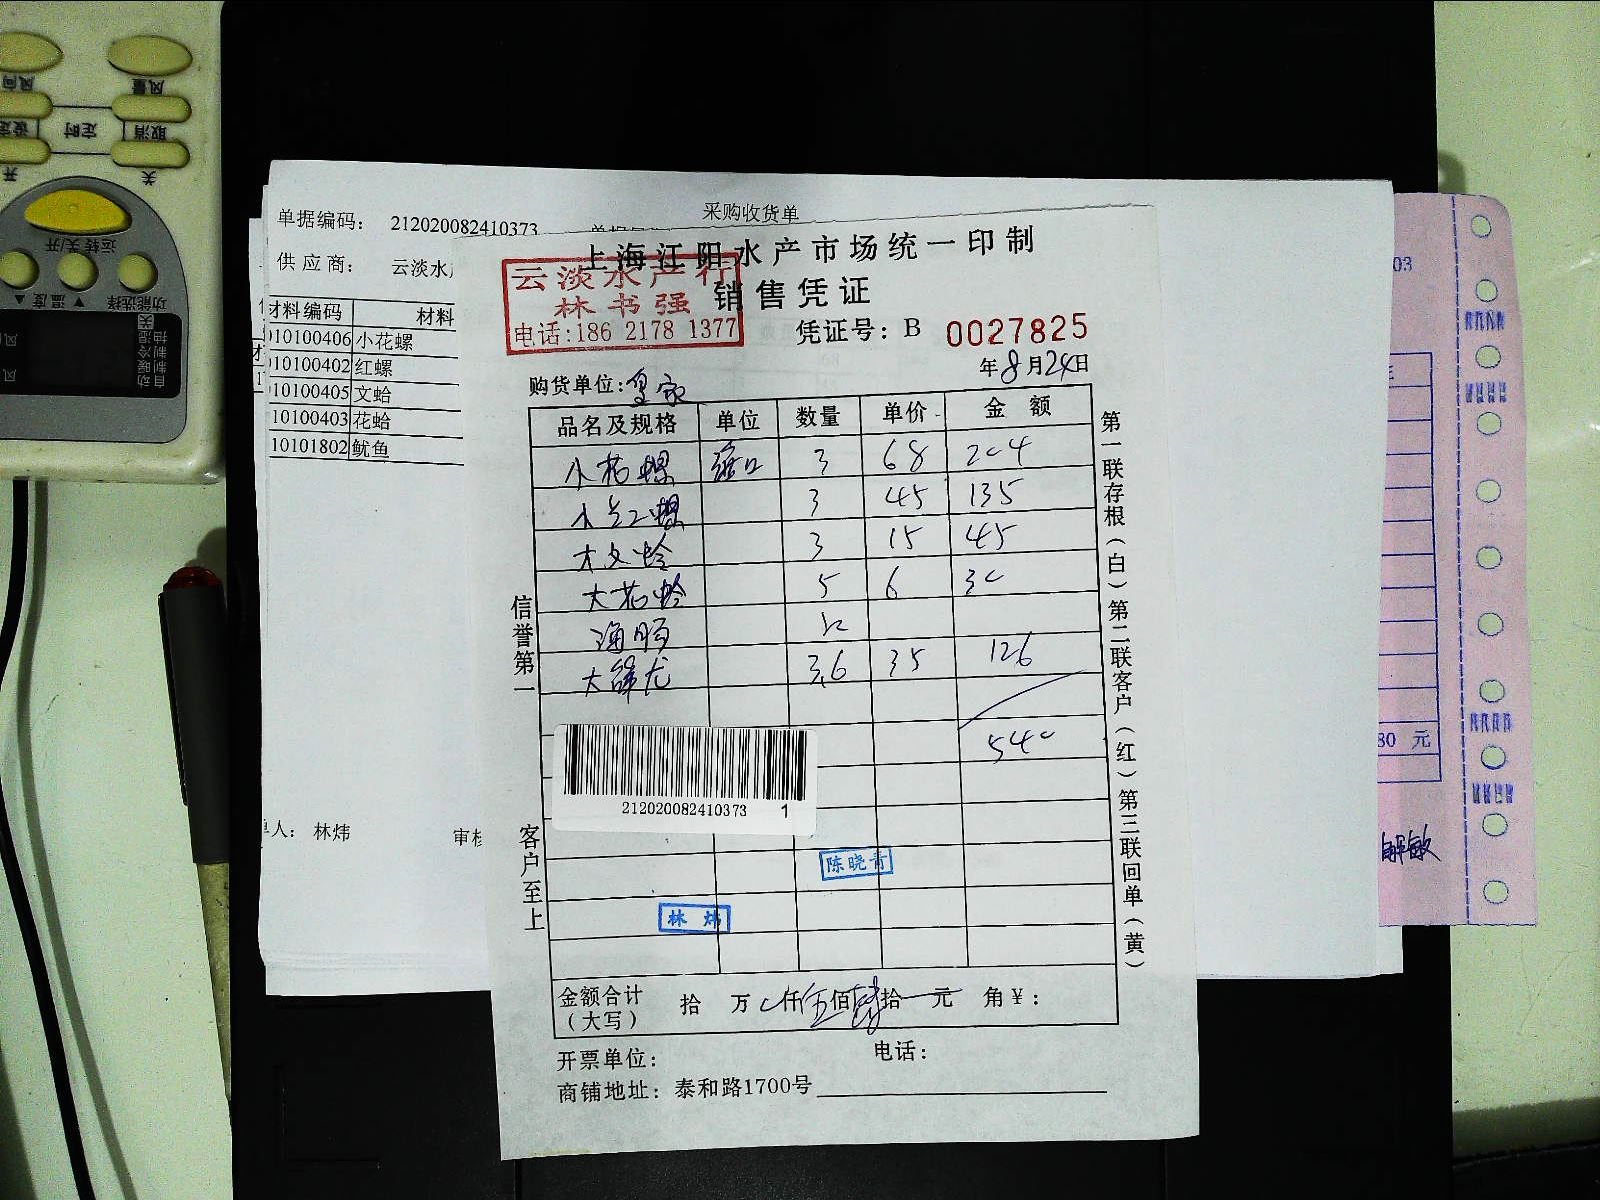 风向
风量
设定
定时
取消
开
关
运转/关开
▲ 温度 ▼
功能选择
抽湿
制冷
制暖
自动
单据编码： 212020082410373
采购收货单
供 应 商： 云淡水
材料编码 材料
10100406 小花螺
10100402 红螺
10100405 文蛤
10100403 花蛤
10101802 鱿鱼
人： 林炜
审核
上海江阳水产市场统一印制
云淡水产行
林书强
电话:186 2178 1377
销售凭证
凭证号: B 0027825
年8月24日
购货单位:皇家
品名及规格 单位 数量 单价 金 额
小花螺 3 68 204
小红螺 3 45 135
大文蛤 3 15 45
大花蛤 5 6 30
海肠
大 3.6 35 126
540
212020082410373 1
陈晓青
林 炜
金额合计（大写） 拾 万 仟伍佰肆拾 元 角￥:
开票单位:
电话:
商铺地址: 泰和路1700号
信誉第一
客户至上
第一联存根(白)第二联客户(红)第三联回单(黄)
03
80 元
解敏